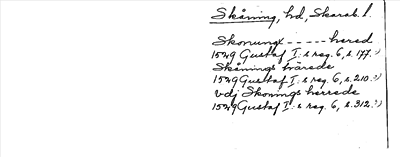 Skåning, hd, Skarab. l.
Skonungx - - - - - hered
1549 Gustaf I:s reg. 6, s. 177.
Skånings härede
1549 Gustaf I:s reg. 6, s. 210.
vdj Skonings herrede
1549 Gustaf I:s reg. 6, s. 312.